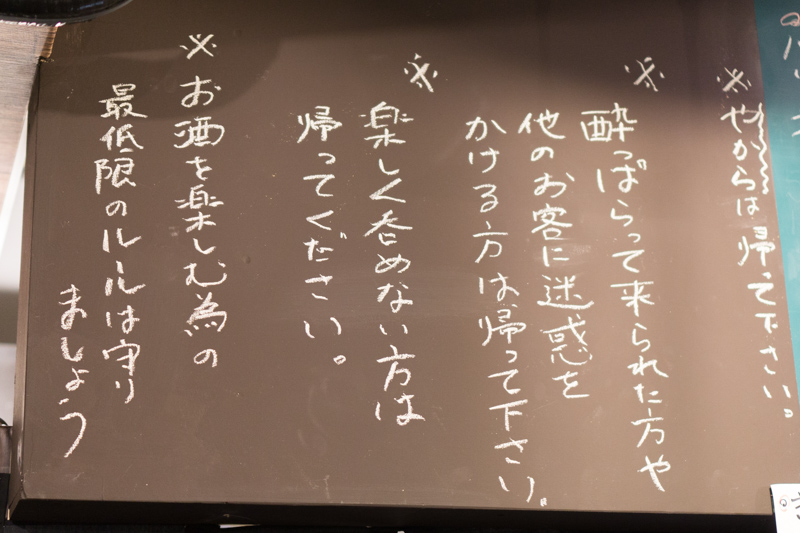 ※やからは帰って下さい。
※酔っぱらって来られた方や
他のお客に迷惑を
かける方は帰って下さい。
※楽しく呑めない方は
帰ってください。
※お酒を楽しむ為の
最低限のルールは守り
ましょう